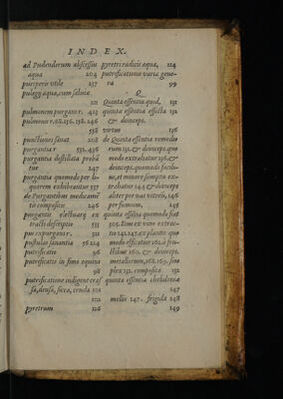 INDEX.
ad Pudendorum abscessus
aqua 204
puerperis utile 237
pulegij aqua, cum saluia
121
pulmonem purgan r. 423
pulmoni r. 68.136.138.246
538
punctiones sanat 208
purgantia 531.436
purgantia destillata proba
tur 247
purgantia quomodo per li-
quorem exhibeantur 537
de Purgantibus medicamē
tis compositis 246
purgantis electuarij ex
tracti descriptio 531
pus expurgans 531
pustulas sanantia 56.214
putrefactio 96
putrefactio in fimo equino
98
putrefactione indigent cras
sa, densa, sicca, cruda 121
121
pyretrum 126
pyretri radicis aqua, 124
putrefactionis varia gene-
ra 99
Q
Quinta essentia quid, 131
quinta essentia effecta
& deinceps.
virtus 136
de Quinta essentia remedio
rum 131. & deinceps, quo
modo extrahatur 136. &
deinceps, quomodo facili-
me, et minore sumptu ex-
trahatur 144. & deinceps
aliter per vas vitreū, 145
per fumum, 145
quinta essentia quomodo fiat
105. Eius ex vino extrac-
tio 141.147. ex plantis quo
modo efficiatur 162. à fru-
ctibus 160. & deinceps.
metallorum, 168.169. sim-
plex 132. composita 132
quinta essentia chelidoniæ
247
mellis 247. frigida 248
249